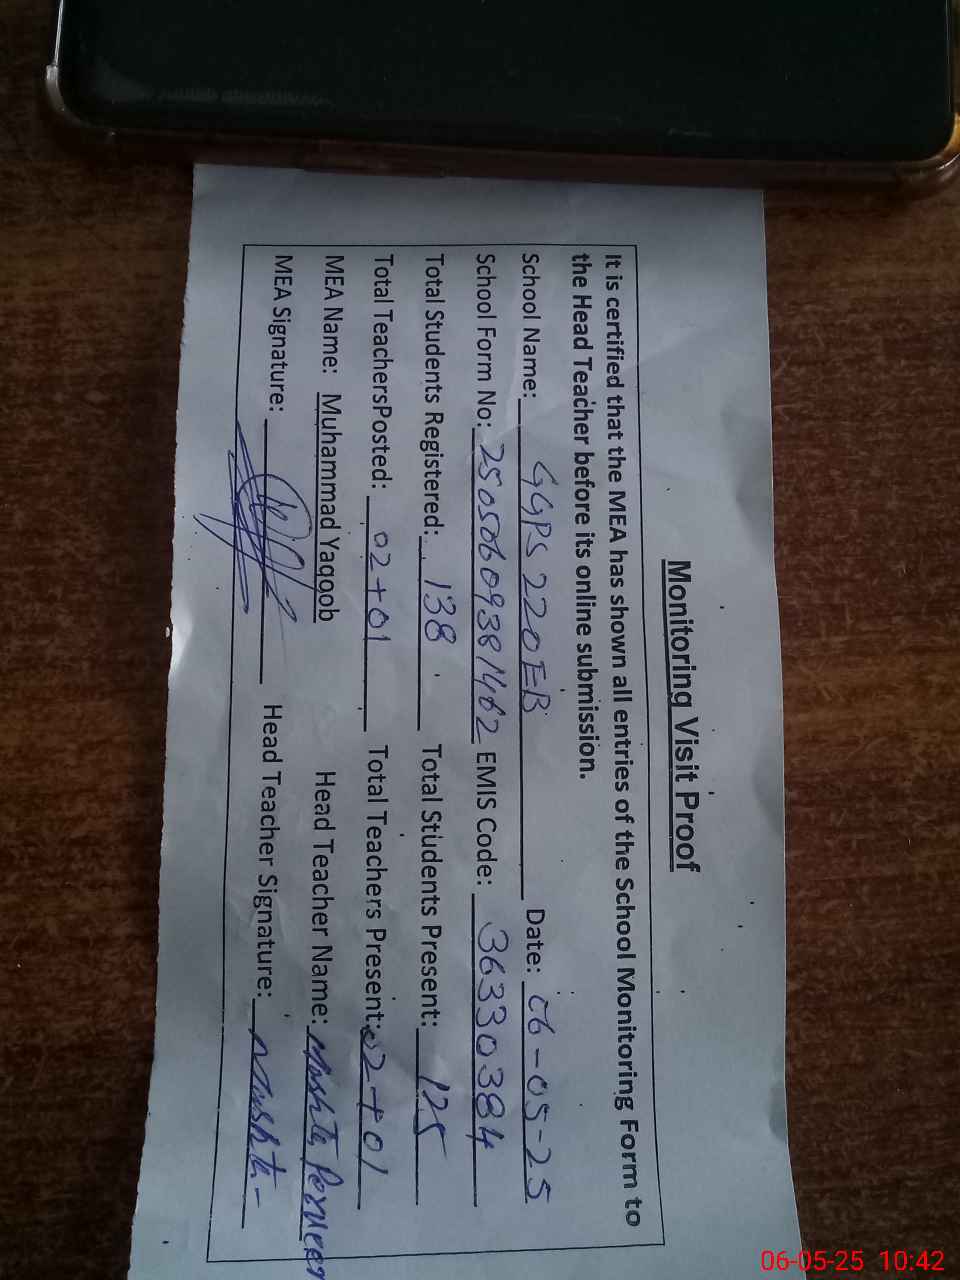 Monitoring Visit Proof
It is certified that the MEA has shown all entries of the School Monitoring Form to
the Head Teacher before its online submission.
School Name: GGPS 220EB Date: 06-05-25
School Form No: 25050609381462 EMIS Code: 36330384
Total Students Registered: 138 Total Students Present: 125
Total TeachersPosted: 02+01 Total Teachers Present: 02+01
MEA Name: Muhammad Yaqoob Head Teacher Name:
MEA Signature: Head Teacher Signature:
06-05-25 10:42